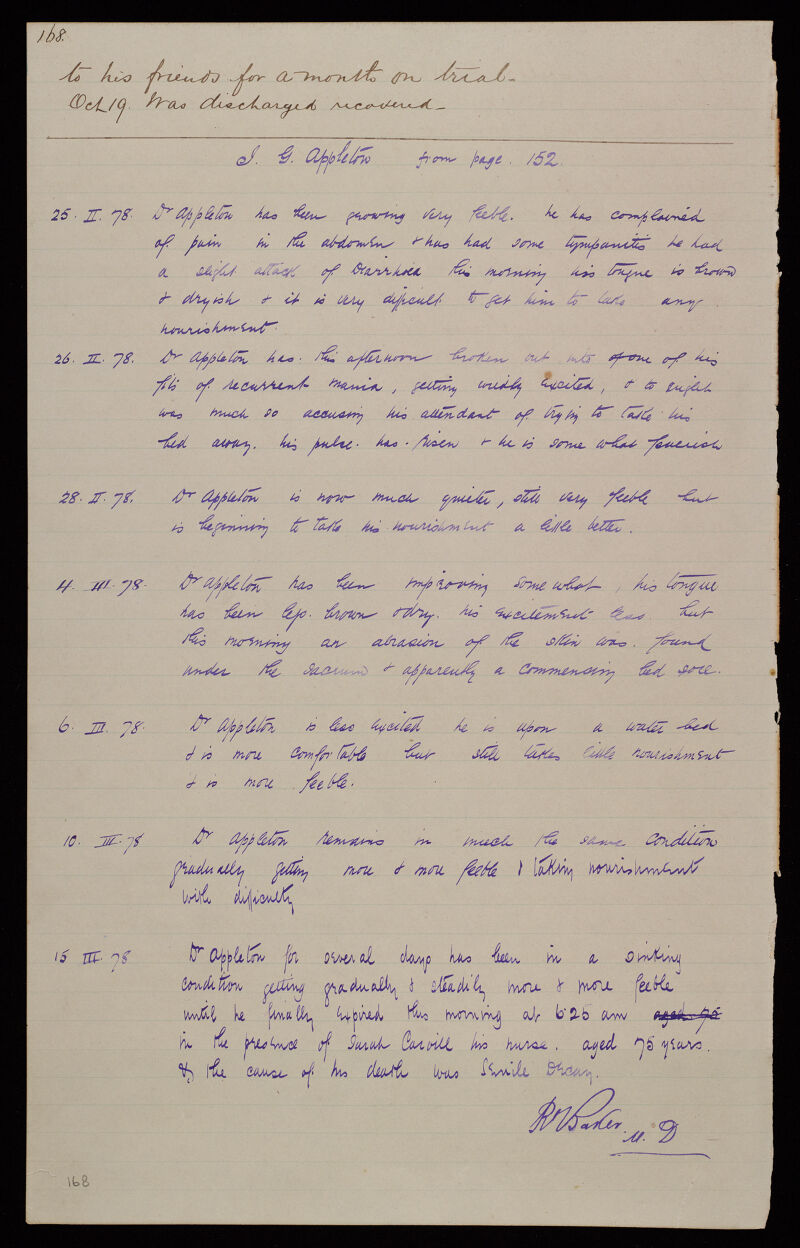 168.
to his friends for a month on trial -
Oct 19. Was discharged recovered -
I. G. Appleton from page. 152.
25. II. 78. Dr Appleton has been growing very feeble. he has complained
of pain in the abdomen & has had some tympanitis he had
a slight attack of Diarrhoea this morning his tongue is brown
& dryish & it is very difficult to get him to take any
nourishment.
26. II. 78. Dr Appleton has. this afternoon broken out into one of his
fits of recurrent mania, getting wildly excited, & to night
was much so accusing his attendant of trying to take his
bed away. his pulse. has. risen & he is some what feverish
28. II. 78. Dr Appleton is now much quieter, still very feeble but
is beginning to take his nourishment a little better.
4. III. 78. Dr Appleton has been improving somewhat, his tongue
has been less. brown & dry. his excitement less but
this morning an abrasion of the skin was. found
under the sacrum & apparently a commencing bed sore.
6. III. 78. Dr Appleton is less excited he is upon a water bed
& is more comfortable but still takes little nourishment
& is more feeble.
10. III. 78 Dr Appleton remains in much the same condition
gradually getting more & more feeble & taking nourishment
with difficulty
15 III. 78 Dr Appleton for several days has been in a sinking
condition getting gradually & steadily more & more feeble
until he finally expired this morning at 6.25 am aged 75
in the presence of Sarah Carvill his nurse. aged 75 years.
& the cause of his death was Senile Decay.
R Baker. M. D
168